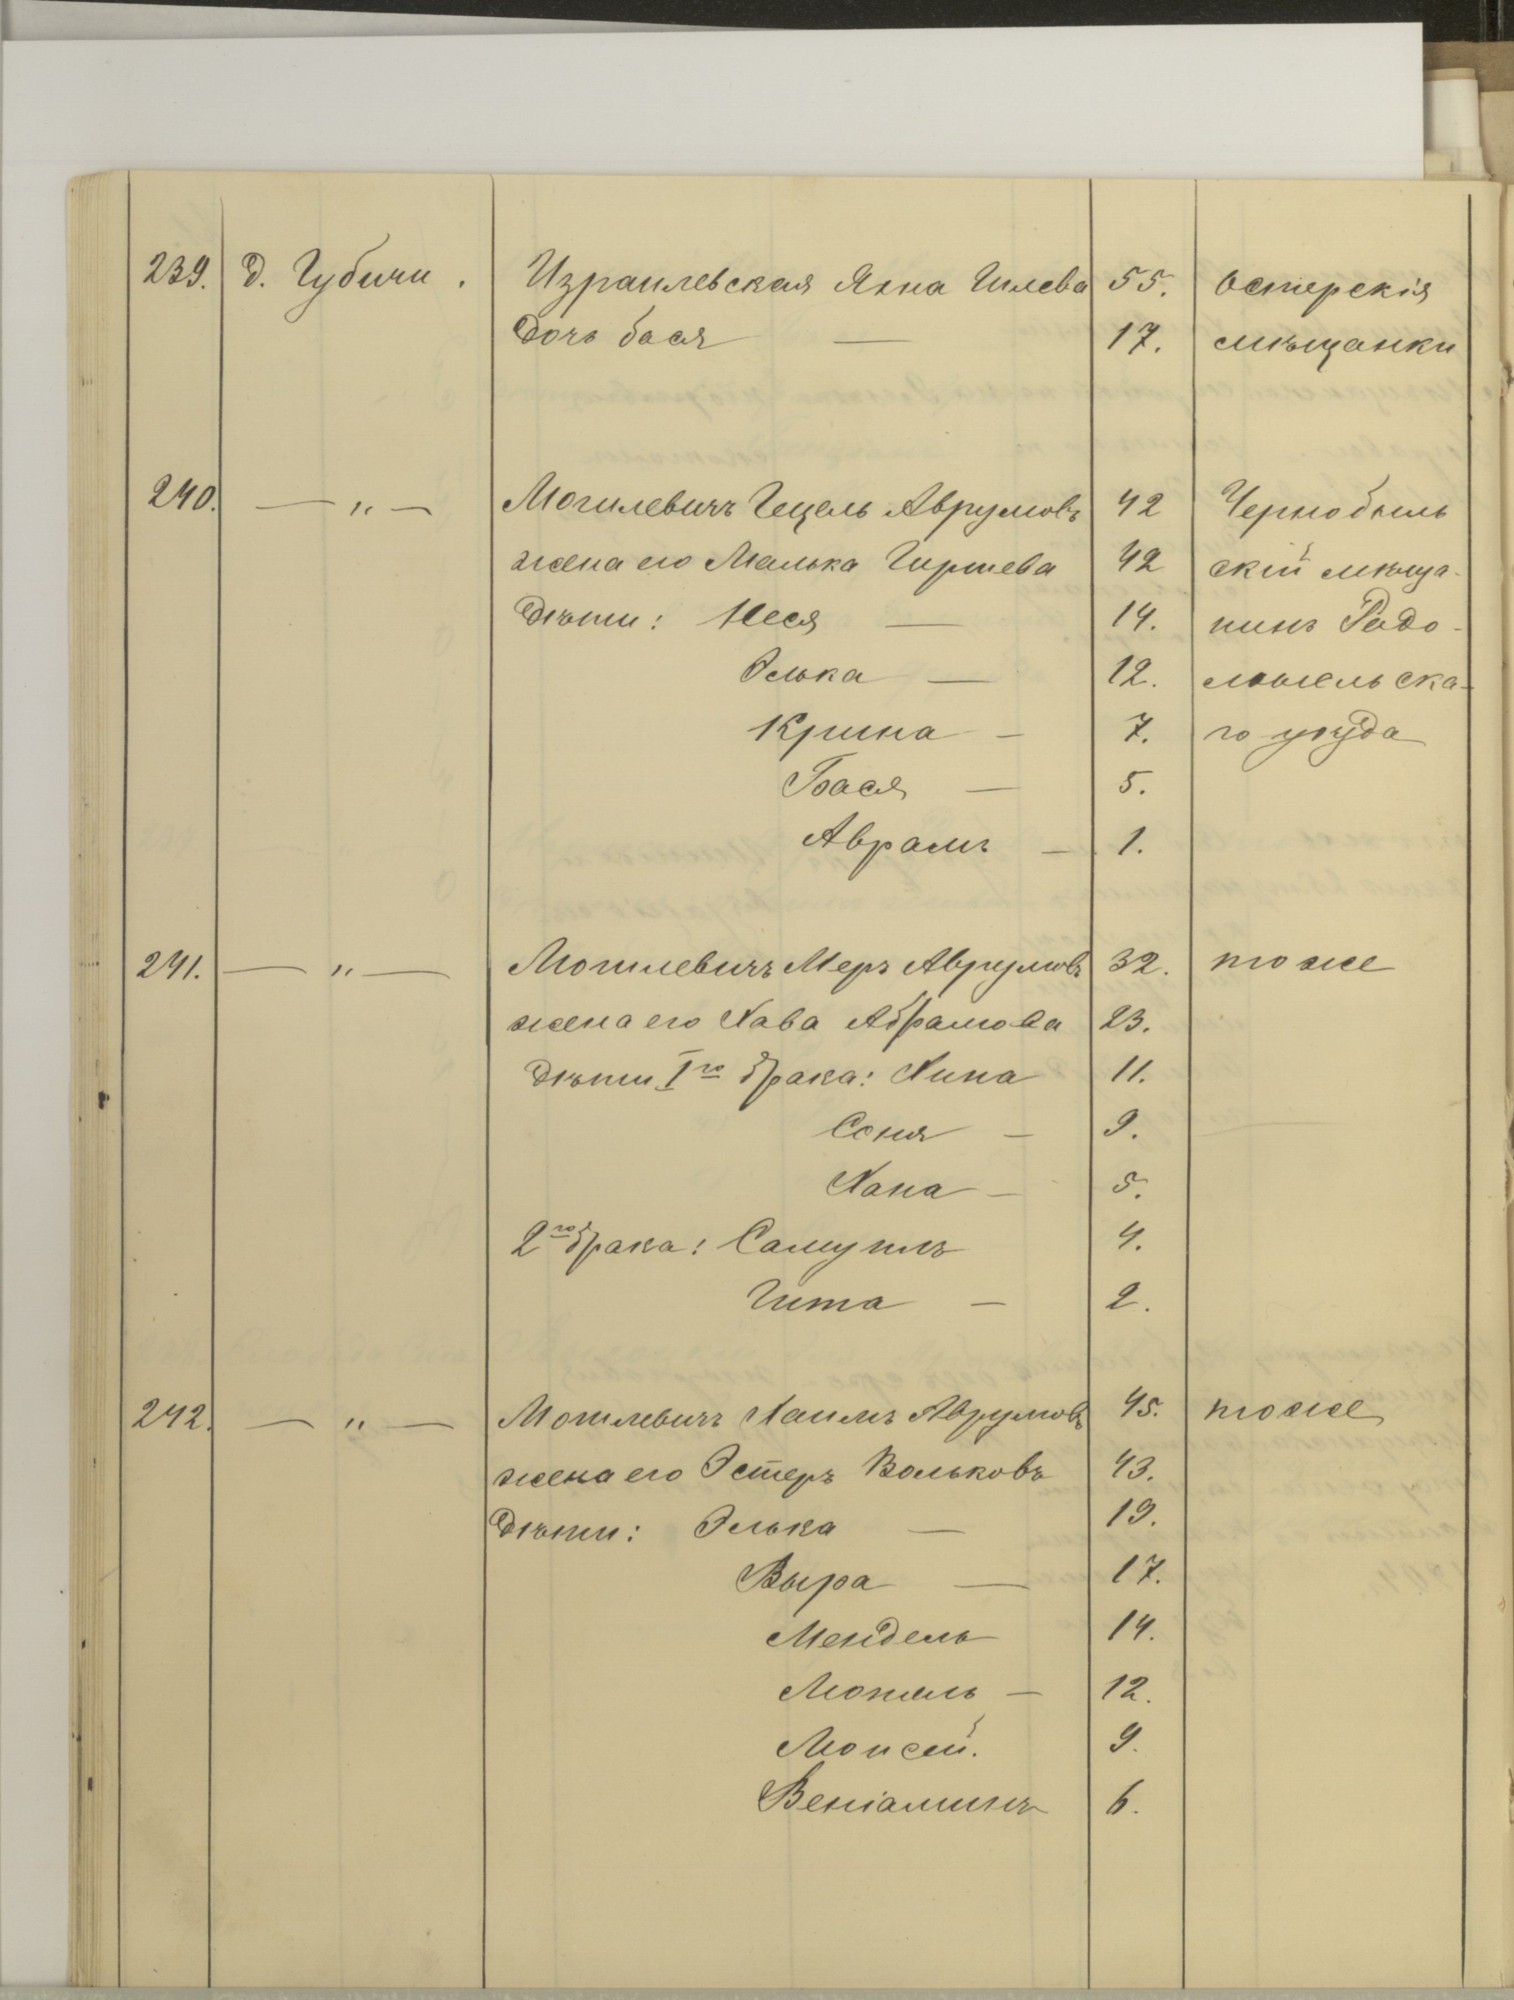 239. д. Губичи. Израилевская Яхна Гилева 55. Остерскія
Дочь бася — 17. мѣщанки
240. — „ — Могилевичъ Гецель Аврумовъ 42 Чернобыль
жена его Малька Гиршева 42 скій мѣща-
Дѣти: Неся — 14. нинъ Радо-
Элька — 12. мысльска-
Крина — 7. го уѣзда
Бася — 5.
Аврамъ — 1.
241. — „ — Могилевичъ Меръ Аврумовъ 32. тоже
жена его Хава Абрамова 23.
Дѣти I го брака: Хина 11.
Соня — 9.
Хана — 5.
2 го брака: Самуилъ 4.
Гита — 2.
242. — „ — Могилевичъ Хаимъ Аврумовъ 45. тоже
жена его Эстеръ Вольковъ 43.
Дѣти: Элька — 19.
Выра — 17.
Мендель 14.
12.
Моисей. 9.
Веніаминъ 6.